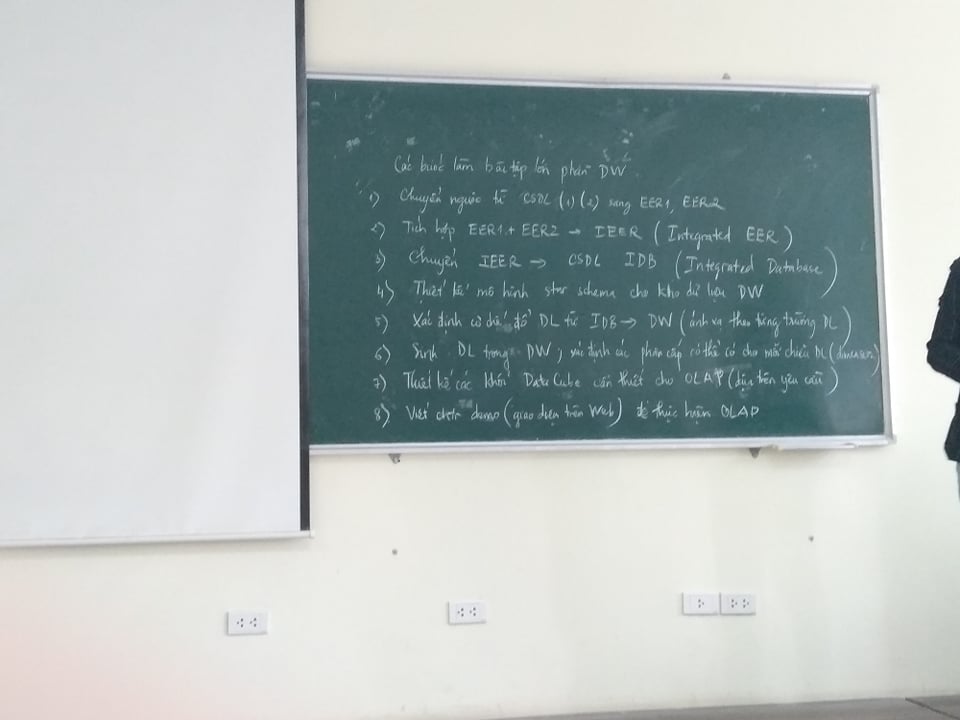 Các bước làm bài tập lớn phần DW
1) Chuyển ngược từ CSDL (1) (2) sang EER1, EER2
2) Tích hợp EER1 + EER2 → IEER (Integrated EER)
3) Chuyển IEER → CSDL IDB (Integrated Database)
4) Thiết kế mô hình star schema cho kho dữ liệu DW
5) Xác định cơ chế đổ DL từ IDB → DW (ánh xạ theo từng trường DL)
6) Sinh DL trong DW, xác định các phân cấp có thể có cho mỗi chiều DL (dimension)
7) Thiết kế các khối Data Cube cần thiết cho OLAP (dựa trên yêu cầu)
8) Viết chtr demo (giao diện trên Web) để thực hiện OLAP